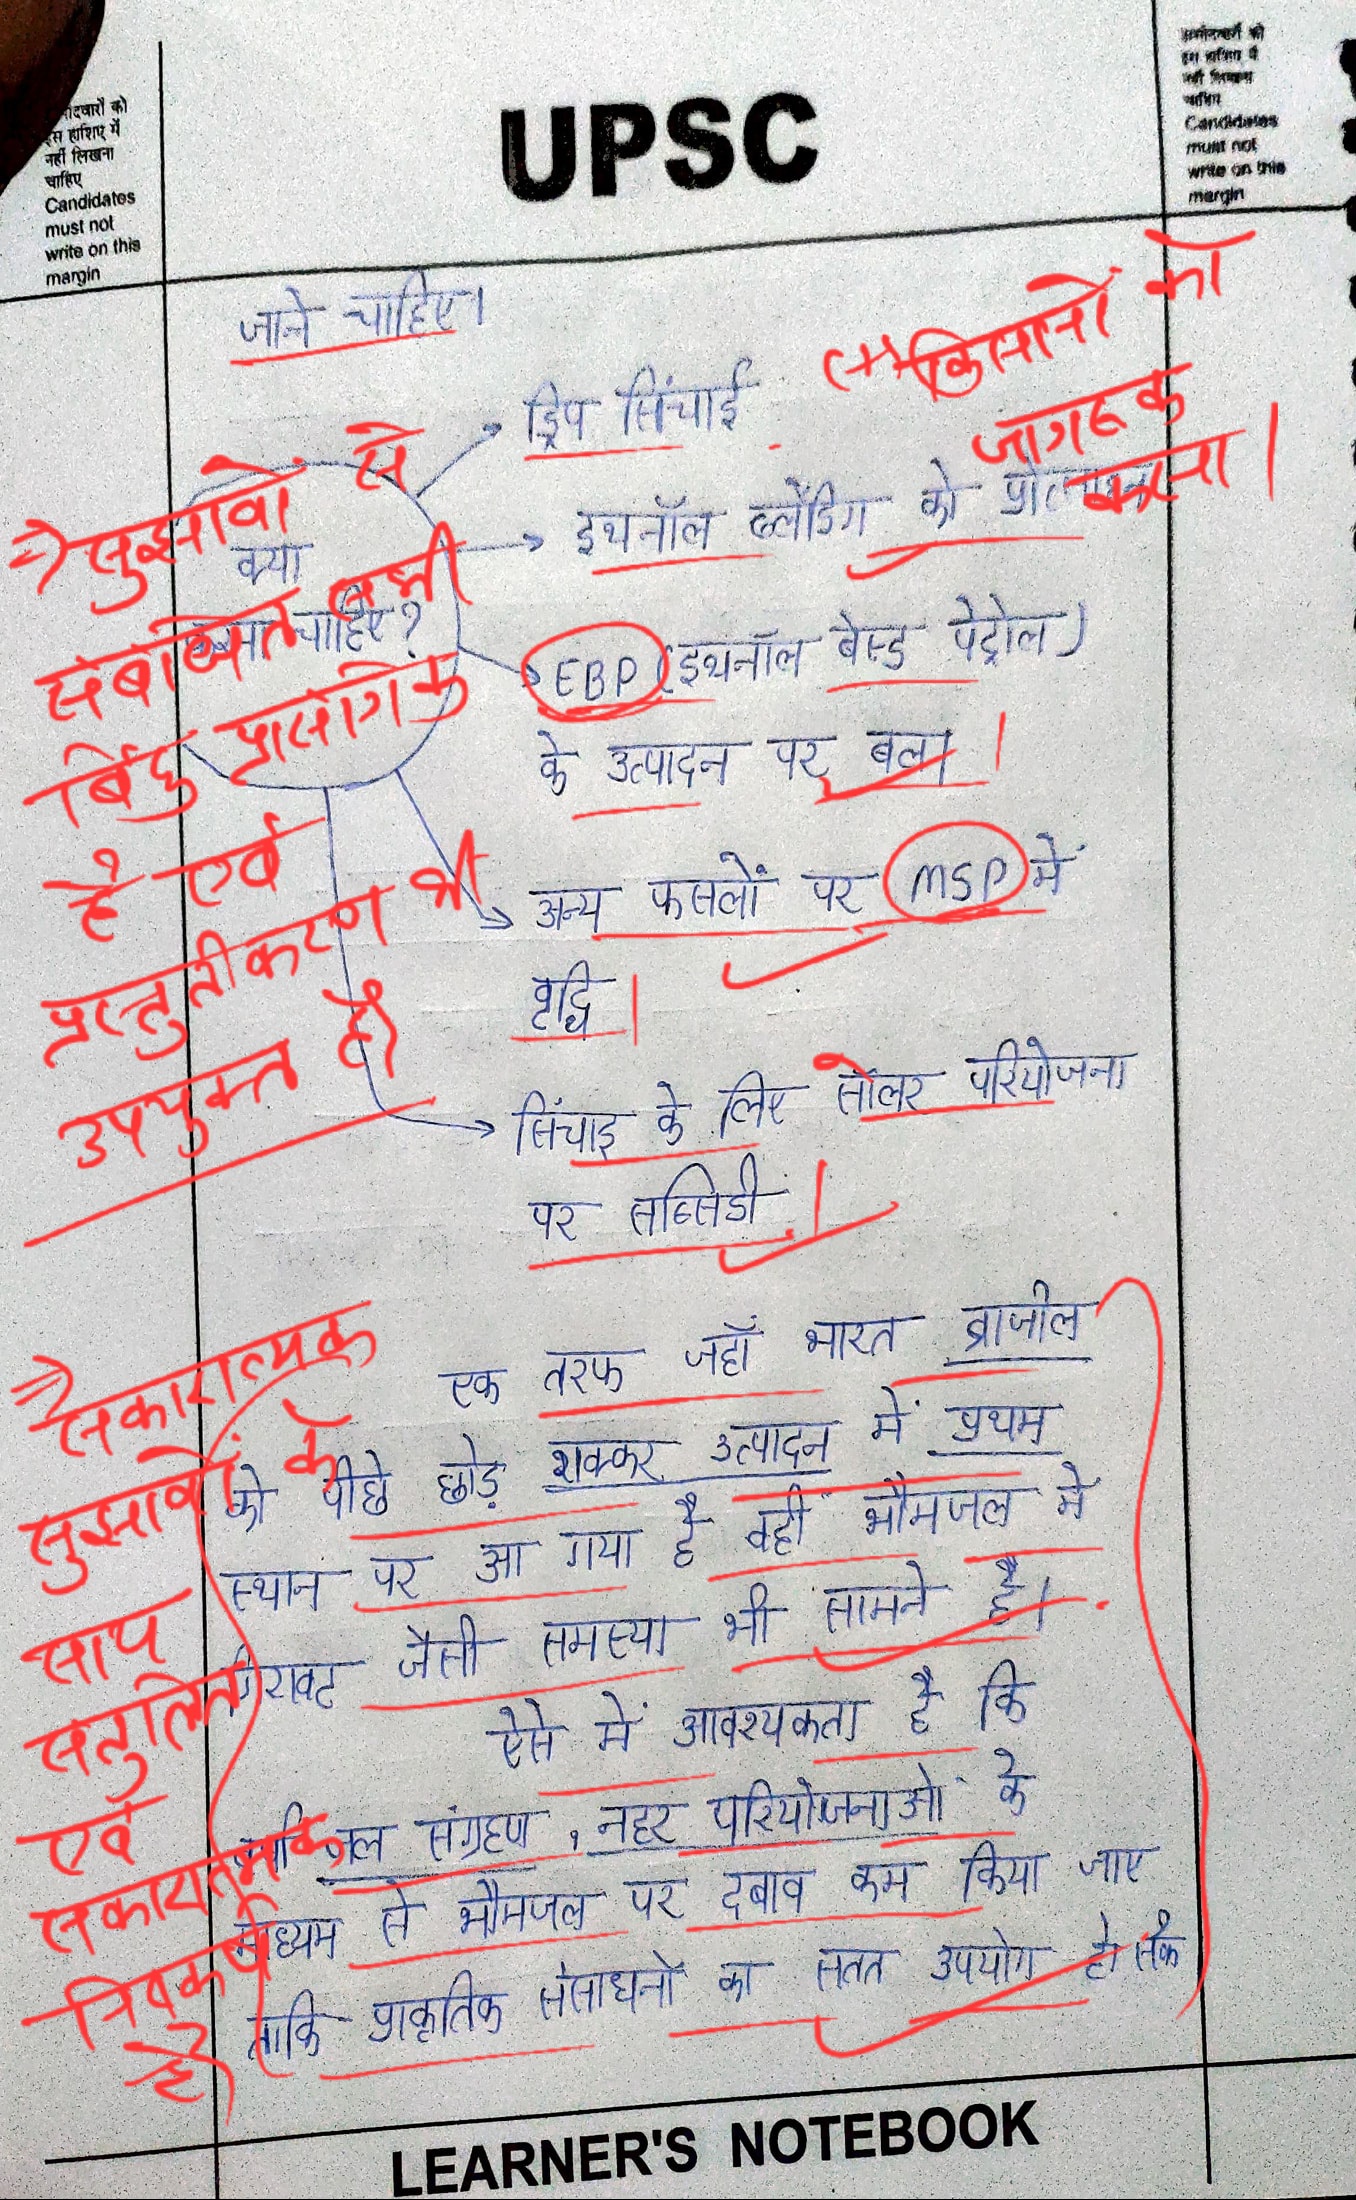 UPSC
इस हाशिए में
नहीं लिखना
चाहिए
Candidates
must not
write on this
margin
उम्मीदवारों को
इस हाशिए में
नहीं लिखना
चाहिए
Candidates
must not
write on this
margin
जाने चाहिए।
किसानों को
जागरूक
करना।
ड्रिप सिंचाई
इथनॉल ब्लेंडिंग को
EBP (इथनॉल बेस्ड पेट्रोल)
के उत्पादन पर बल।
अन्य फसलों पर MSP में
वृद्धि।
सिंचाइ के लिए सोलर परियोजना
पर सब्सिडी।
क्या
चाहिए?
सुझावों से
संबंधित सभी
बिंदु प्रासंगिक
है एवं
प्रस्तुतीकरण भी
उपयुक्त है।
एक तरफ जहाँ भारत ब्राजील
को पीछे छोड़ शक्कर उत्पादन में प्रथम
स्थान पर आ गया है वहीं भौमजल में
गिरावट जैसी समस्या भी सामने है।
ऐसे में आवश्यकता है कि
जल संग्रहण, नहर परियोजनाओं के
माध्यम से भौमजल पर दबाव कम किया जाए
ताकि प्राकृतिक संसाधनों का सतत उपयोग हो सके
सकारात्मक
सुझावों के
साथ
संतुलित
एवं
सकारात्मक
निष्कर्ष
है।
LEARNER'S NOTEBOOK